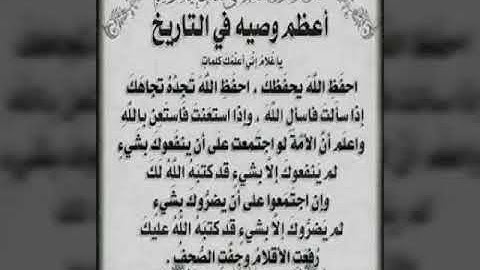 أعظم وصيه في التاريخ
يا غلام إني أعلمك كلمات
احفَظ اللهَ يحفَظكَ ، احفَظِ اللهَ تَجدْهُ تجاهَكَ
إذا سألتَ فاسألِ اللهَ ، وإذا استعَنتَ فاستَعِن باللهِ
واعلَم أنَّ الأمَّةَ لو اجتمعت على أن ينفَعوكَ بشيءٍ
لم يَنفعوكَ إلَّا بشيءٍ قد كتبَهُ اللَّهُ لَكَ
وإن اجتَمَعوا على أن يضرُّوكَ بشيءٍ
لم يَضرُّوكَ إلَّا بشيءٍ قد كتبَهُ اللَّهُ عليكَ
رُفِعَتِ الأقلامُ وجفَّتِ الصُّحفُ .